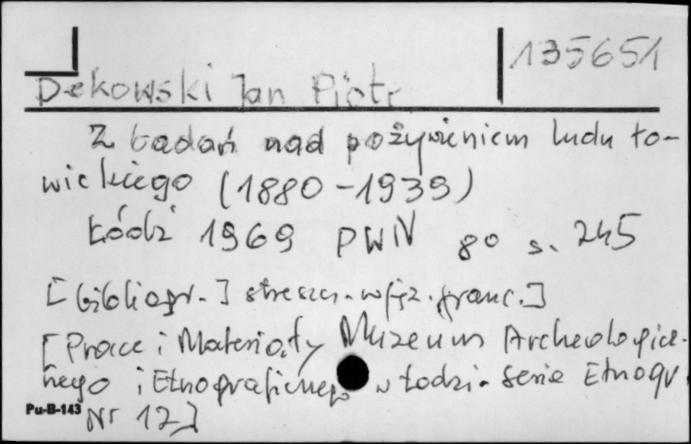 135651
Dekowski Jan Piotr
Z badań nad pożywieniem ludu ło-
wickiego (1880-1939)
Łódź 1969 PWN 8° s. 245
[bibliogr.] streszcz. w jęz. franc.]
[Prace i Materiały Muzeum Archeologicz-
nego i Etnograficznego w Łodzi. Seria Etnogr.
Pu-B-143 Nr 12]